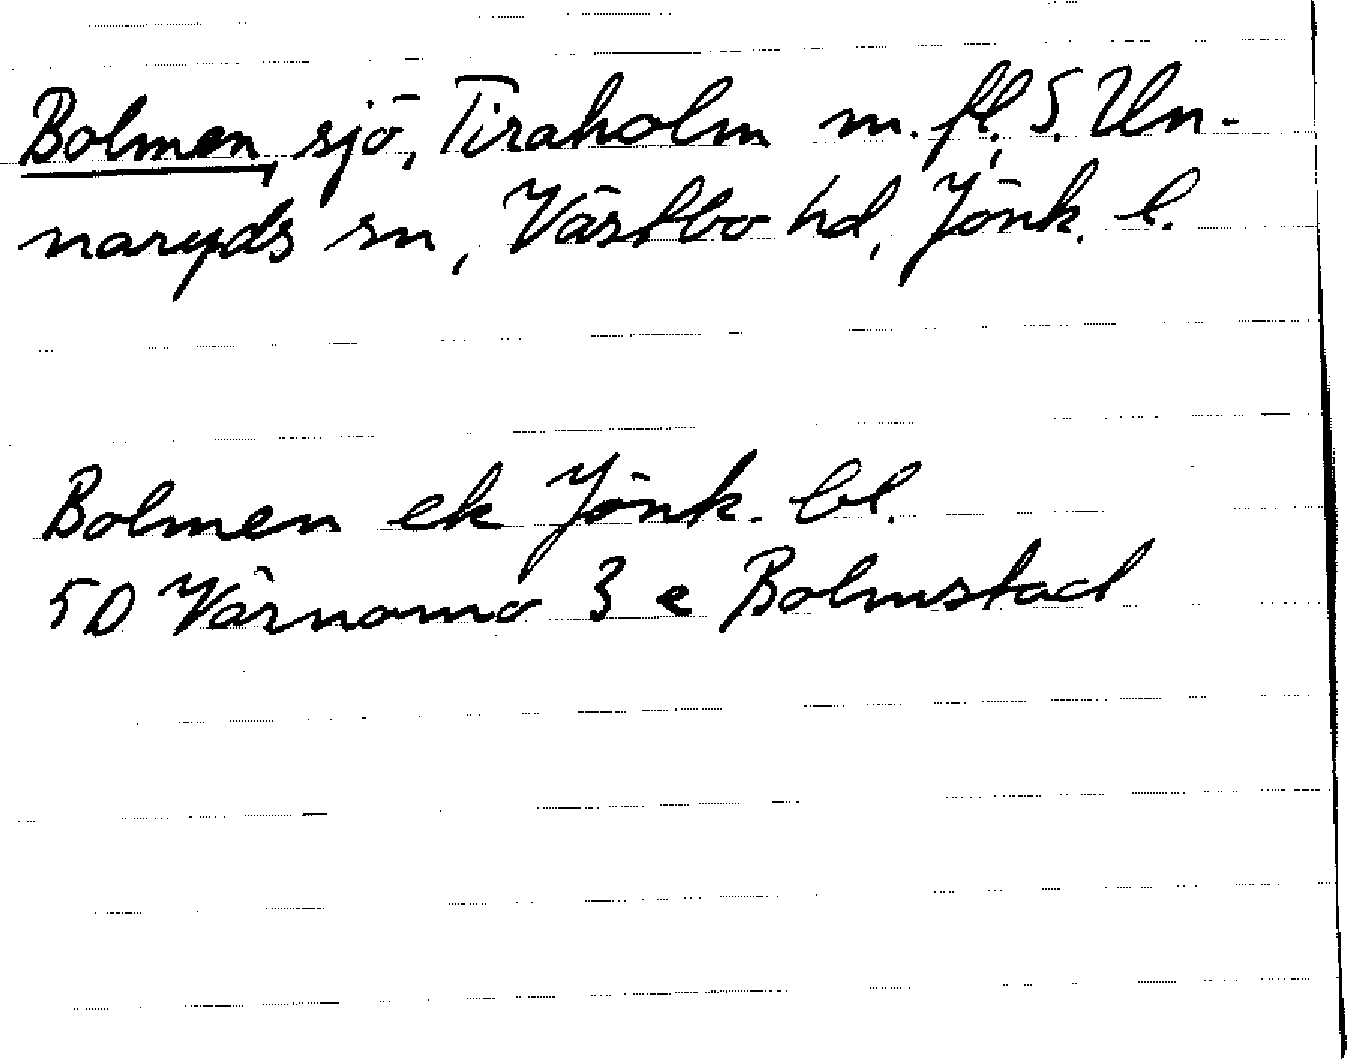 Bolmen, sjö, Tiraholm m.fl., S. Un-
naryds sn, Västbo hd, Jönk. l.
Bolmen ek Jönk. bl.
5D Värnamo 3 e Bolmstad